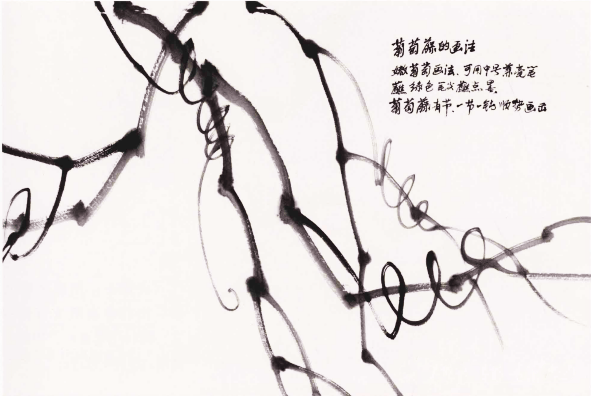 葡萄藤的画法
嫩葡萄画法、可用中号兼毫笔
蘸绿色笔尖蘸点墨。
葡萄藤有节、一节一节 顺势画出